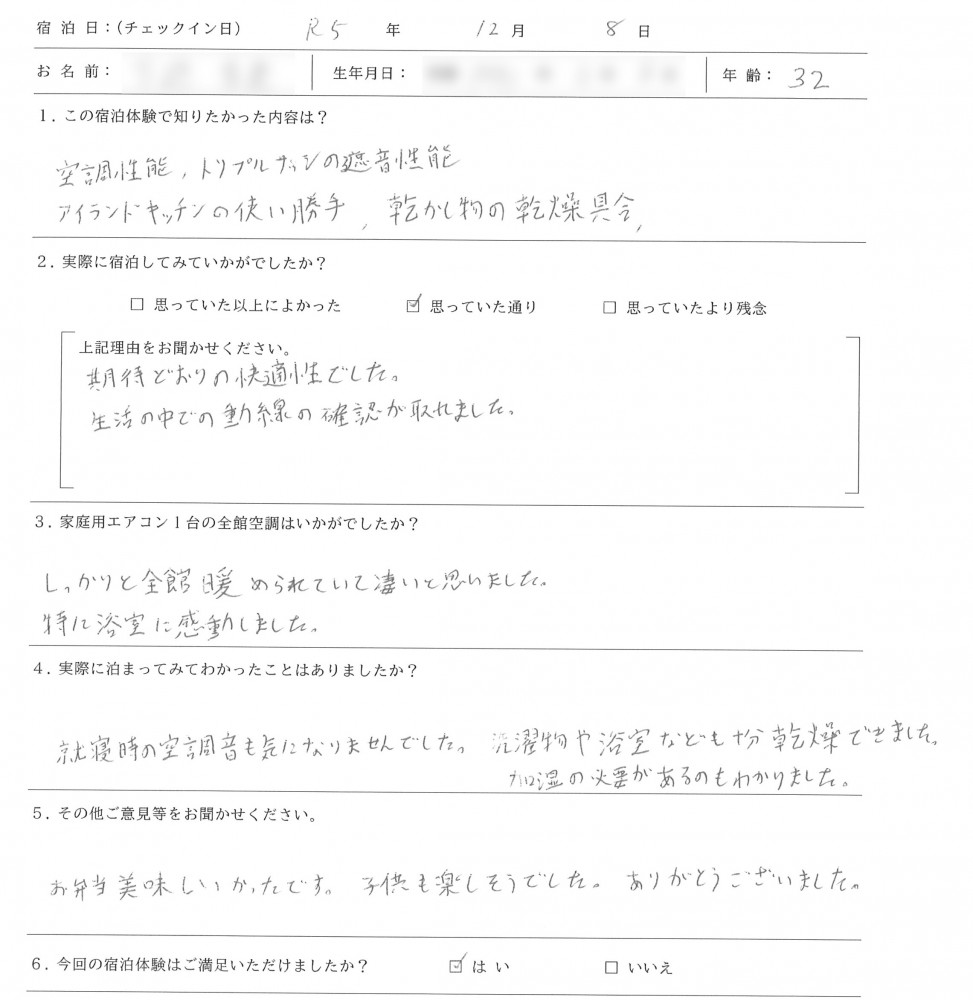 宿泊日:(チェックイン日) R5 年 12 月 8 日
お名前: 生年月日: 年齢: 32
1. この宿泊体験で知りたかった内容は?
空調性能, トリプルサッシの遮音性能
アイランドキッチンの使い勝手, 乾かし物の乾燥具合,
2. 実際に宿泊してみていかがでしたか?
□ 思っていた以上によかった ☑ 思っていた通り □ 思っていたより残念
上記理由をお聞かせください。
期待どおりの快適性でした。
生活の中での動線の確認が取れました。
3. 家庭用エアコン1台の全館空調はいかがでしたか?
しっかりと全館暖められていて凄いと思いました。
特に浴室に感動しました。
4. 実際に泊まってみてわかったことはありましたか?
就寝時の空調音も気になりませんでした。 洗濯物や浴室なども十分乾燥できました。
加湿の必要があるのもわかりました。
5. その他ご意見等をお聞かせください。
お弁当美味しいかったです。 子供も楽しそうでした。 ありがとうございました。
6. 今回の宿泊体験はご満足いただけましたか? ☑ はい □ いいえ